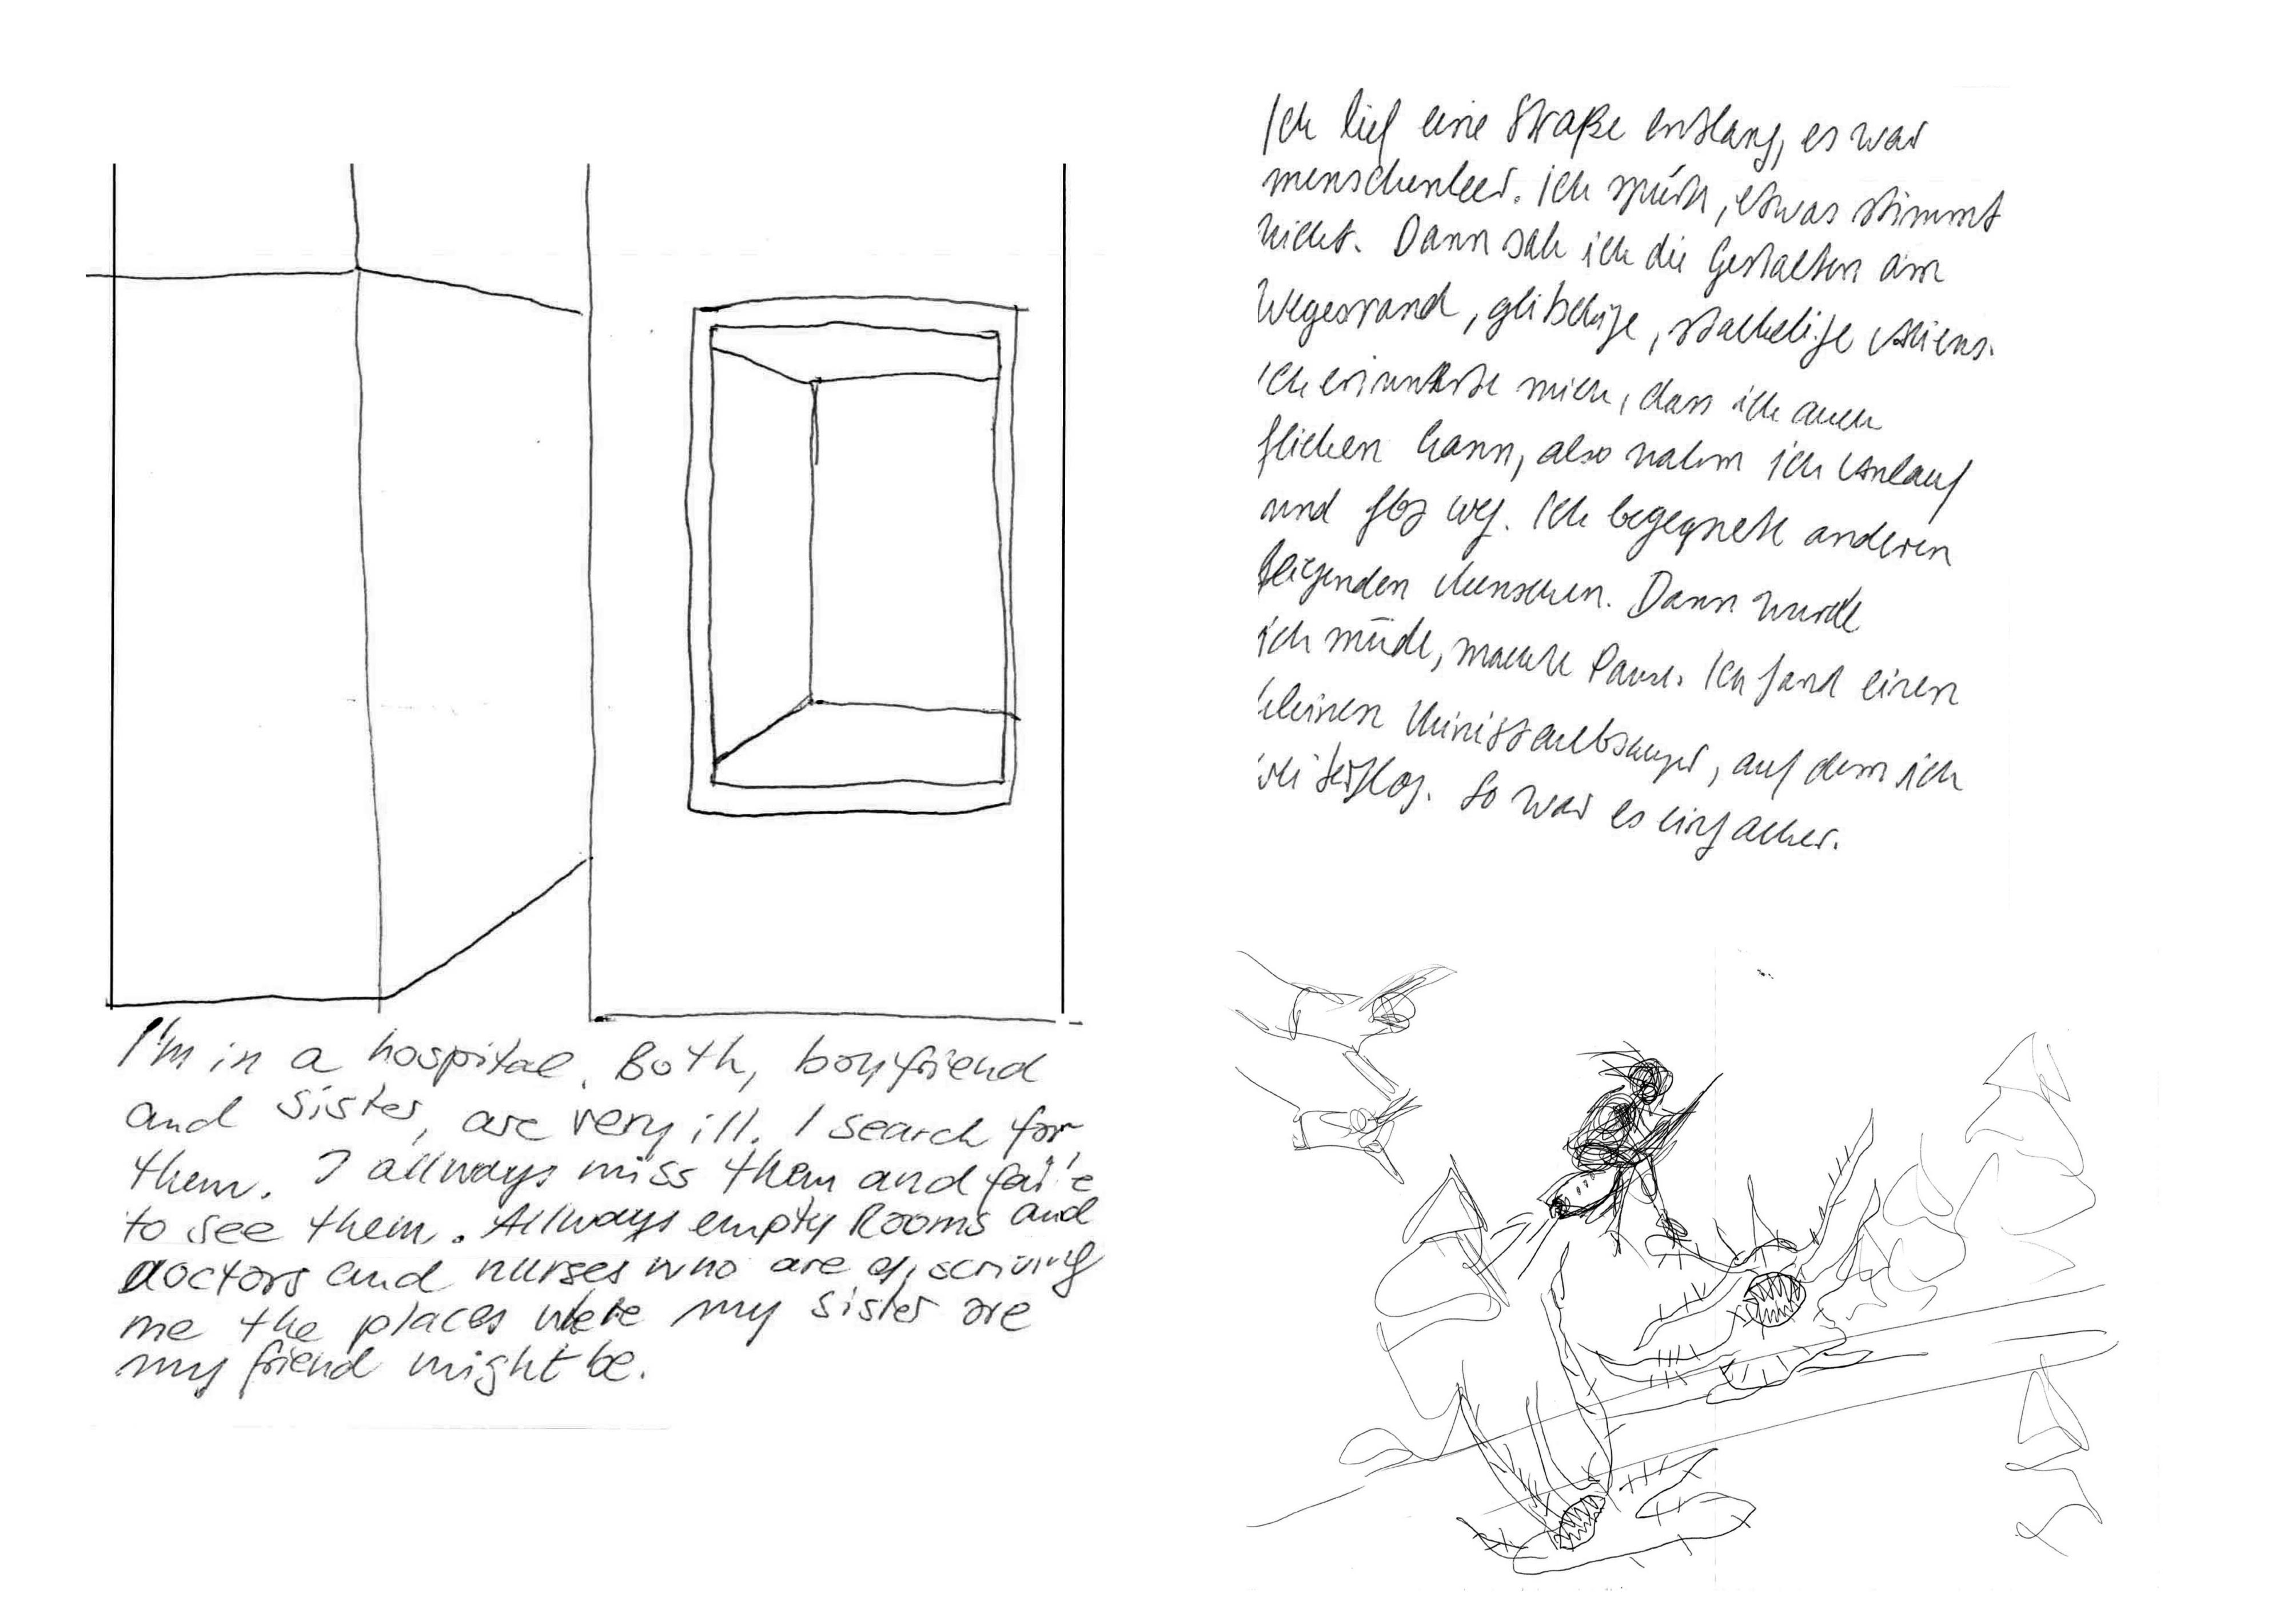 I'm in a hospital. Both, boyfriend
and sister, are very ill. I search for
them. I allways miss them and faile
to see them. Allways empty Rooms and
doctors and nurses who are discriving
me the places where my sister ore
my friend might be.
Ich lief eine Straße entlang, es war
menschenleer. Ich spürte, etwas stimmt
nicht. Dann sah ich die Gestalten am
Wegesrand, glitschige, stachelige Aliens.
Ich erinnerte mich, dass ich auch
fliehen kann, also nahm ich Anlauf
und flog weg. Ich begegnete anderen
fliegenden Menschen. Dann wurde
ich müde, machte Pause. Ich fand einen
kleinen Ministaubsauger, auf dem ich
weiterflog. So war es einfacher.